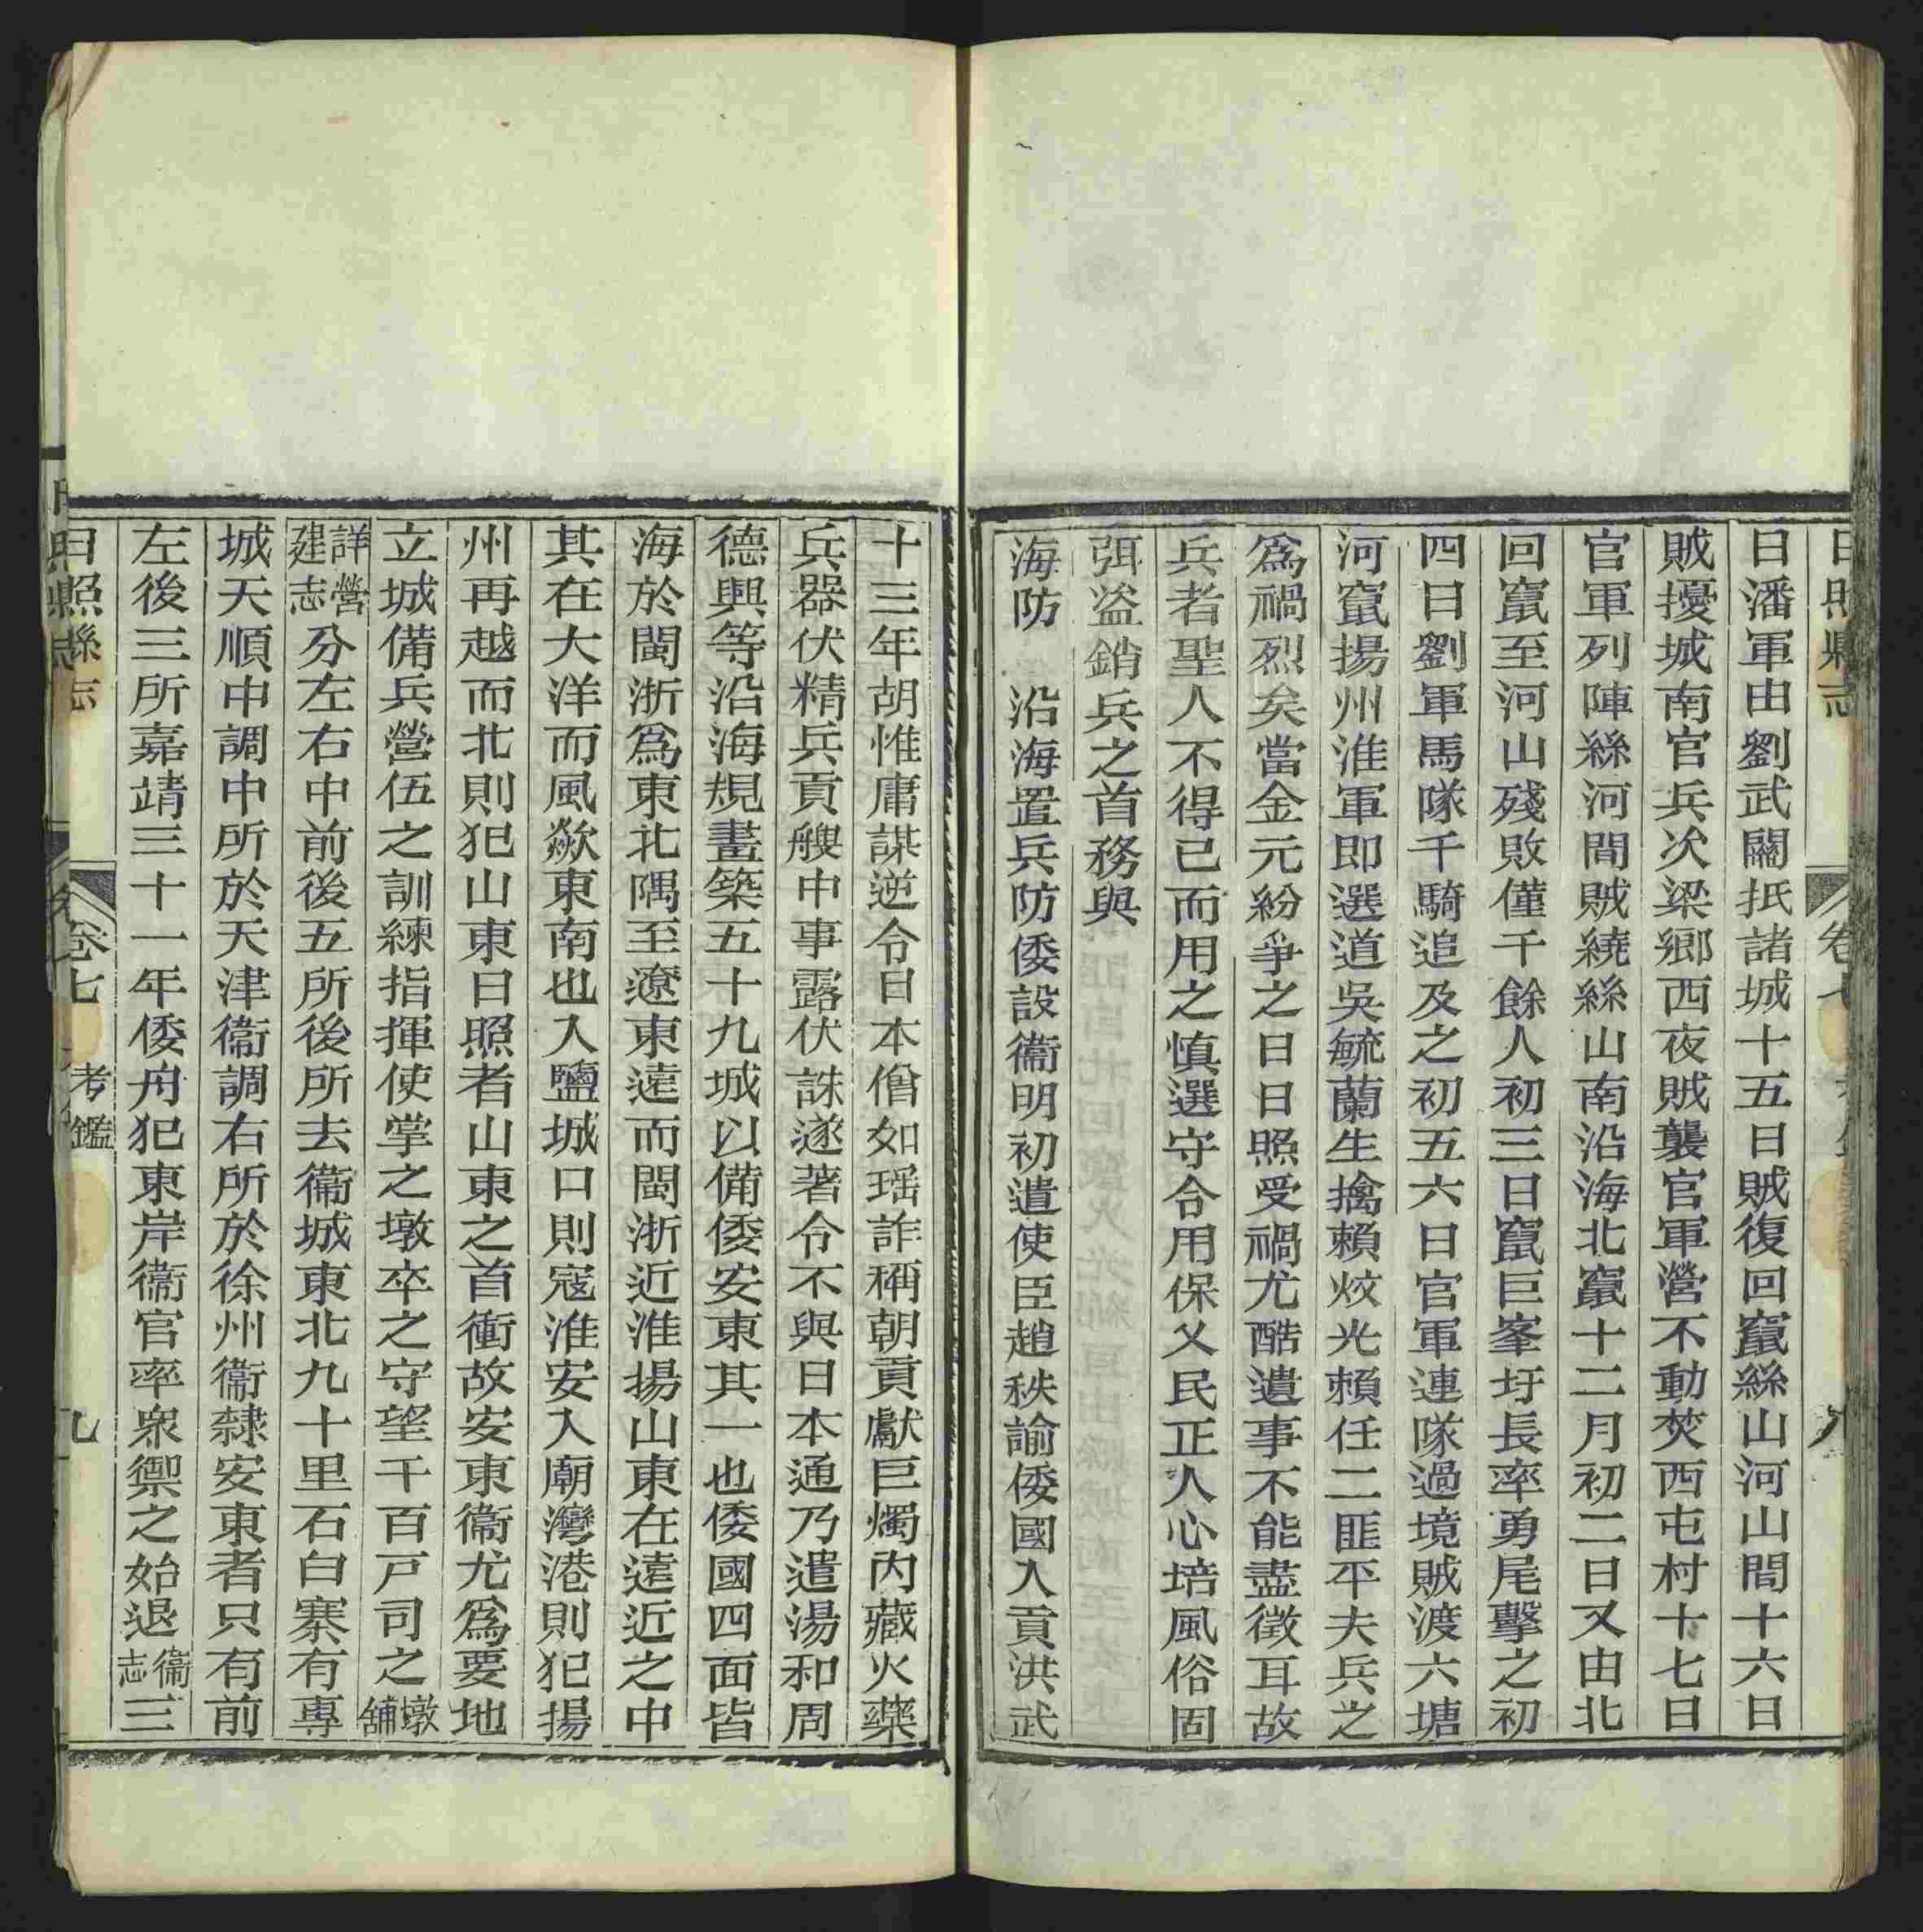 日照縣志 卷七
日潘軍由劉武關抵諸城十五日賊復回竄絲山河山間十六日
賊擾城南官兵次梁鄉西夜賊襲官軍營不動焚西屯村十七日
官軍列陣絲河間賊繞絲山南沿海北竄十二月初二日又由北
回竄至河山殘敗僅千餘人初三日竄巨峯圩長率勇尾擊之初
四日劉軍馬隊千騎追及之初五六日官軍連隊過境賊渡六塘
河竄揚州淮軍即選道吳毓蘭生擒賴烄光賴任二匪平夫兵之
爲禍烈矣當金元紛爭之日日照受禍尤酷遺事不能盡徵耳故
兵者聖人不得已而用之慎選守令用保乂民正人心培風俗固
弭盜銷兵之首務與
海防 沿海置兵防倭設衞明初遣使臣趙秩諭倭國入貢洪武
十三年胡惟庸謀逆令日本僧如瑶詐稱朝貢獻巨燭内藏火藥
兵器伏精兵貢艘中事露伏誅遂著令不與日本通乃遣湯和周
德興等沿海規畫築五十九城以備倭安東其一也倭國四面皆
海於閩浙爲東北隅至遼東遠而閩浙近淮揚山東在遠近之中
其在大洋而風歘東南也入鹽城口則寇淮安入廟灣港則犯揚
州再越而北則犯山東日照者山東之首衝故安東衞尤爲要地
立城備兵營伍之訓練指揮使掌之墩卒之守望千百戸司之墩舖
詳營建志分左右中前後五所後所去衞城東北九十里石白寨有專
城天順中調中所於天津衞調右所於徐州衞隸安東者只有前
左後三所嘉靖三十一年倭舟犯東岸衞官率衆禦之始退衞志三
日照縣志 卷七 考鑑 九